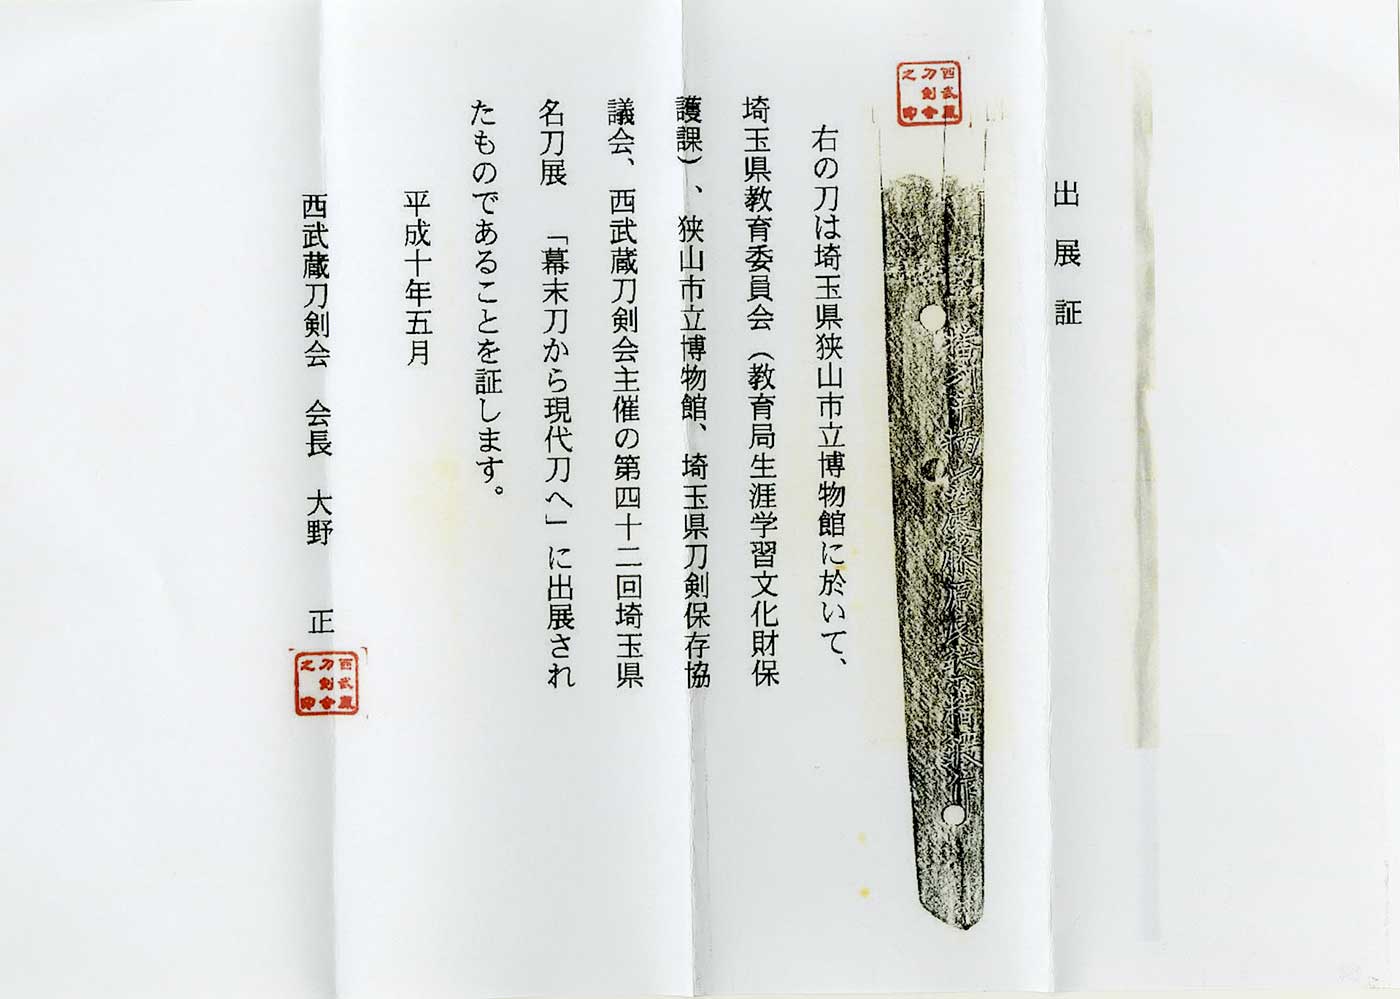 出展証
西武蔵
刀剣会
之印
右の刀は埼玉県狭山市立博物館に於いて、
埼玉県教育委員会（教育局生涯学習文化財保
護課）、狭山市立博物館、埼玉県刀剣保存協
議会、西武蔵刀剣会主催の第四十二回埼玉県
名刀展　「幕末刀から現代刀へ」に出展され
たものであることを証します。
平成十年五月
西武蔵刀剣会　会長　大野　正
西武蔵
刀剣会
之印